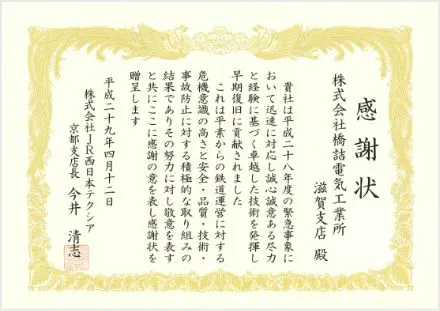 感謝状
株式会社橋詰電気工業所
滋賀支店 殿
貴社は平成二十八年度の緊急事象に
おいて迅速に対応し誠心誠意ある尽力
と経験に基づく卓越した技術を発揮し
早期復旧に貢献されました
これは平素からの鉄道運営に対する
危機意識の高さと安全・品質・技術・
事故防止に対する積極的な取り組みの
結果でありその努力に対し敬意を表す
と共にここに感謝の意を表し感謝状を
贈呈します
平成二十九年四月十二日
株式会社JR西日本テクシア
京都支店長 今井 清志